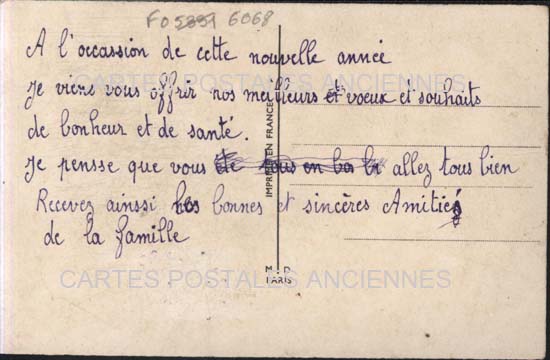 FO 5351 6068
A l'occassion de cette nouvelle année
Je viens vous offrir nos meilleurs et voeux et souhaits
de bonheur et de santé.
Je pensse que vous allez tous bien
Recevez ainssi les bonnes et sincères Amitiés
de la famille
CARTES POSTALES ANCIENNES
CARTES POSTALES ANCIENNES
IMPRIMÉ EN FRANCE
M D
PARIS